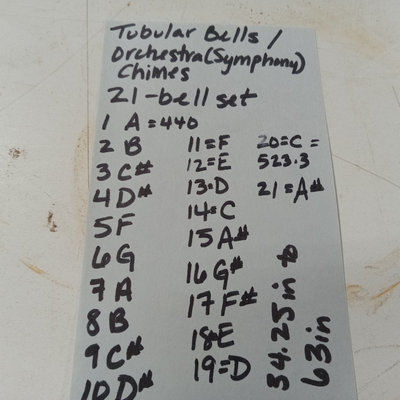 Tubular Bells /
Orchestra (Symphony)
Chimes
21-bell set
1 A = 440
2 B
3 C#
4 D#
5 F
6 G
7 A
8 B
9 C#
10 D#
11=F
12=E
13=D
14=C
15 A#
16 G#
17 F#
18=E
19=D
20=C =
523.3
21=A#
54.25 in to
63 in